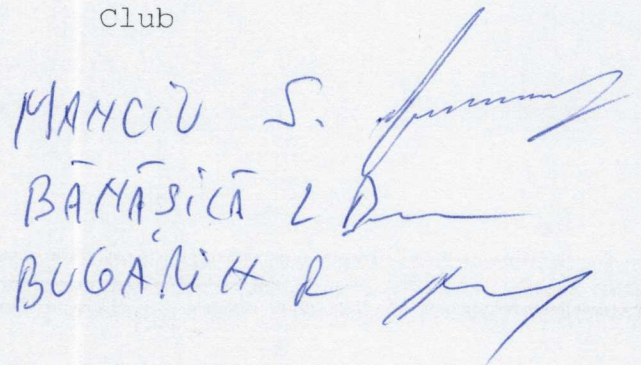 Club
MANCIU S.
BĂNĂSICĂ L
BUGARIN R